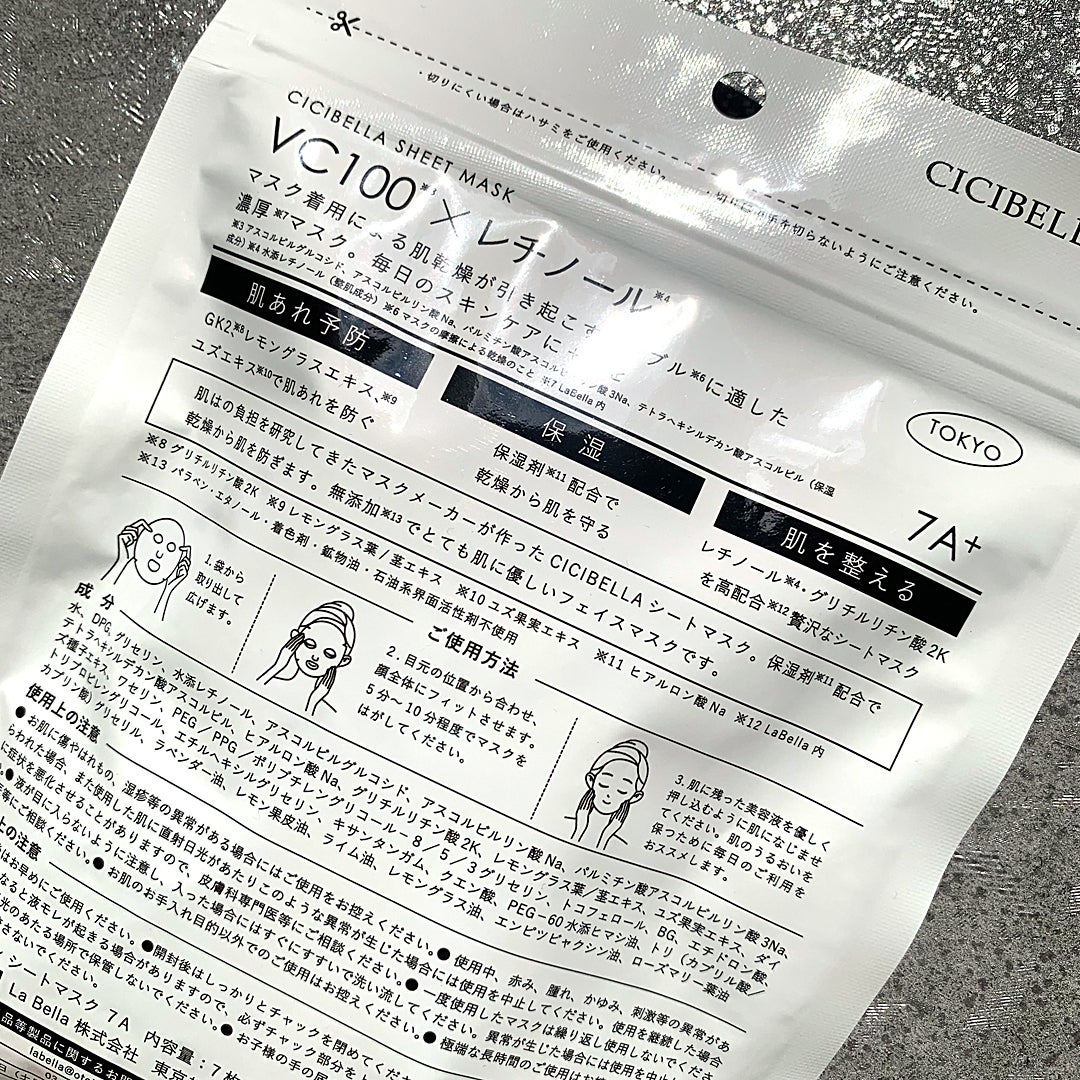 ・切りにくい場合はハサミをご使用ください。
CICIBELLA SHEET MASK
VC100※3 × レチノール※4
マスク着用による肌乾燥が引き起こす
ブル※6に適した
濃厚※7マスク。毎日のスキンケアに
※3 アスコルビルグルコシド、アスコルビルリン酸Na、パルミチン酸アスコルビルリン酸3Na、テトラヘキシルデカン酸アスコルビル（保湿
成分）※4 水添レチノール（整肌成分）※6 マスクの摩擦による乾燥のこと ※7 LaBella内
TOKYO
7A+
肌あれ予防
GK2※8レモングラスエキス、※9
ユズエキス※10で肌あれを防ぐ
保湿
保湿剤※11配合で
乾燥から肌を守る
肌を整える
レチノール※4・グリチルリチン酸2K
を高配合※12贅沢なシートマスク
肌はの負担を研究してきたマスクメーカーが作ったCICIBELLAシートマスク。保湿剤※11配合で
乾燥から肌を防ぎます。無添加※13でとても肌に優しいフェイスマスクです。
※8 グリチルリチン酸2K ※9 レモングラス葉/茎エキス ※10 ユズ果実エキス ※11 ヒアルロン酸Na ※12 LaBella内
※13 パラベン・エタノール・着色剤・鉱物油・石油系界面活性剤不使用
ご使用方法
1.袋から
取り出して
広げます。
2.目元の位置から合わせ、
顔全体にフィットさせます。
5分～10分程度でマスクを
はがしてください。
3.肌に残った美容液を優しく
押し込むように肌になじませ
てください。肌のうるおいを
保つために毎日のご利用を
おススメします。
成分
水、DPG、グリセリン、水添レチノール、アスコルビルグルコシド、アスコルビルリン酸Na、パルミチン酸アスコルビルリン酸3Na、
テトラヘキシルデカン酸アスコルビル、ヒアルロン酸Na、グリチルリチン酸2K、レモングラス葉/茎エキス、ユズ果実エキス、ダイ
ズ種子エキス、ワセリン、PEG/PPG/ポリブチレングリコール-8/5/3グリセリン、トコフェロール、BG、エチドロン酸、
トリプロピレングリコール、エチルヘキシルグリセリン、キサンタンガム、クエン酸、PEG-60水添ヒマシ油、トリ（カプリル酸/
カプリン酸）グリセリル、ラベンダー油、レモン果皮油、ライム油、レモングラス油、エンピツビャクシン油、ローズマリー葉油
使用上の注意
●お肌に傷やはれもの、湿疹等の異常がある場合にはご使用をお控えください。●使用中、赤み、腫れ、かゆみ、刺激等の異常があ
らわれた場合、また使用した肌に直射日光があたりこのような異常が生じた場合には使用を中止してください。使用を継続した場合
に症状を悪化させることがありますので、皮膚科専門医等にご相談ください。●一度使用したマスクは繰り返し使用しないでくださ
●液が目に入らないように注意し、入った場合にはすぐにすすいで洗い流してください。異常が生じた場合には使用を中止し
等にご相談ください。●お肌のお手入れ目的以外でのご使用はお控えください。●極端な長時間のご使用は
上の注意
はお早めにご使用ください。●開封後はしっかりとチャックを閉めてくだ
なると液モレが起きる場合がありますので、必ずチャック部分を上
光のあたる場所で保管しないでください。●お子様の手の届
さないでください。
シートマスク 7A 内容量：7枚
La Bella株式会社